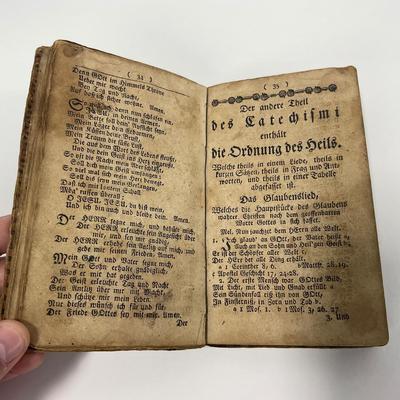 ( 34 )
Denn GOtt im Himmels Throne
Ueber mir wacht
Bey Tag und Nacht,
Auf daß ich sicher wohne. Amen.
So schlaff ich denn nun schlaffen ein,
JEsu! in deinen Armen.
Mein Bette soll dein
Mein Lager dein Erbarmen,
Mein Küssen deine Brust,
Mein Traum die süsse Lust,
Die aus dem Wort des Lebens fleußt,
Und die dein Geist ins Herz eingeußt.
So oft die Nacht mein Ader schlägt,
Soll dich mein Geist umfangen,
So viel mal sich mein Herz bewegt,
Soll das seyn mein Verlangen,
Daß ich mit lautem Schall
Mög' ruffen überall:
O JESU, JESU, du bist mein,
Und ich bin auch und bleibe dein. Amen.
Der HERR segne mich, und behüte mich,
Der HERR erleuchte sein Angesicht über
mir, und sey mir gnädig,
Der HERR erhebe sein Antlitz auf mich, und
gebe mir seinen Frieden, Amen.
Mein GOtt und Vater segne mich,
Der Sohn erhalte gnädiglich,
Was er mir hat gegeben.
Der Geist erleuchte Tag und Nacht
Sein Antlitz über mir mit Macht,
Und schütze mir mein Leben.
Nur dieses wünsch ich für und für:
Der Friede GOttes sey mit mir. Amen.
Der
( 35 )
Der andere Theil
des Catechismi
enthält
die Ordnung des Heils.
Welche theils in einem Liede, theils in
kurzen Sätzen, theils in Frag und Ant-
worten, und theils in einer Tabelle
abgefasset ist.
Das Glaubenslied,
Welches die Hauptstücke des Glaubens
wahrer Christen nach dem geoffenbarten
Worte Gottes in sich fasset.
Mel. Nun dancket dem HErrn alle Welt.
1. Ich glaub' an GOtt, den Vater, a
Auch an den Sohn und Heil'gen Geist b;
Er ist der Schöpfer aller Welt c,
Der HErr der alle Ding erhält.
a 1 Corinther 8, 6. b Matth. 28, 19.
c Apostel Geschicht 17, 24 28.
2. Der erste Mensch war GOttes Bild,
Mit Licht, mit Lieb und Gnad erfüllt a
Sein Sündenfall riß ihn von GOtt,
In Finsterniß, in Zorn und Tod b.
a 1 Mos. 1. b 1 Mos. 3, 26. 27
3. Und